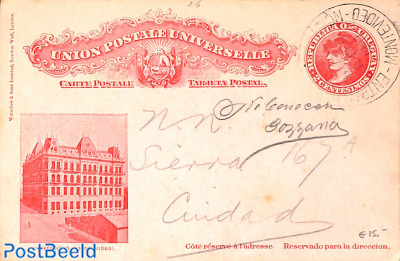 26
UNION POSTALE UNIVERSELLE
CARTE POSTALE TARJETA POSTAL.
REPUBLICA URUGUAY
CENTESIMOS
MONTEVIDEO
Waterlow & Sons Limited, London Wall, London.
Gozzana
N. N.
Sierra 167 A
Ciudad
€15.-
Côté réservé à l'adresse. Reservado para la direccion.
PostBeeld